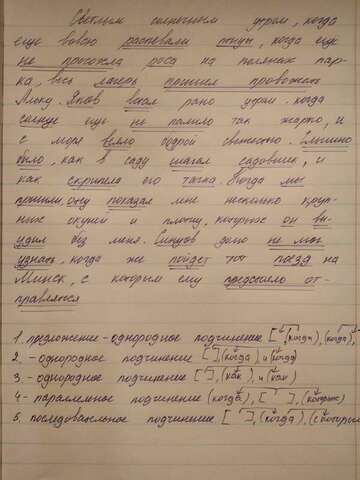 Светлым солнечным утром, когда
еще вовсю распевали птицы, когда ещё
не просохла роса на полянах пар-
ка, весь лагерь пришел провожать
Альку. Яков встал рано утром. когда
солнце еще не палило так жарко, и
с моря веяло бодрой свежестью. Слышно
было, как в саду шагал садовник, и
как скрипела его тачка. Когда мы
пришли, он показал мне несколько круп-
ных окуней и плотву, которых он вы-
удил без меня. Синцов даже не мог
узнать, когда же пойдет тот поезд на
Минск, с которым ему предстояло от-
правляться
1. предложение - однородное подчинение [ ], (когда), (когда),
2. - однородное подчинение [ ], (когда) и (когда)
3. - однородное подчинение [ ], (как), и (как)
4 - параллельное подчинение (когда), [ ], (которых)
5. последовательное подчинение [ ], (когда), (с которым